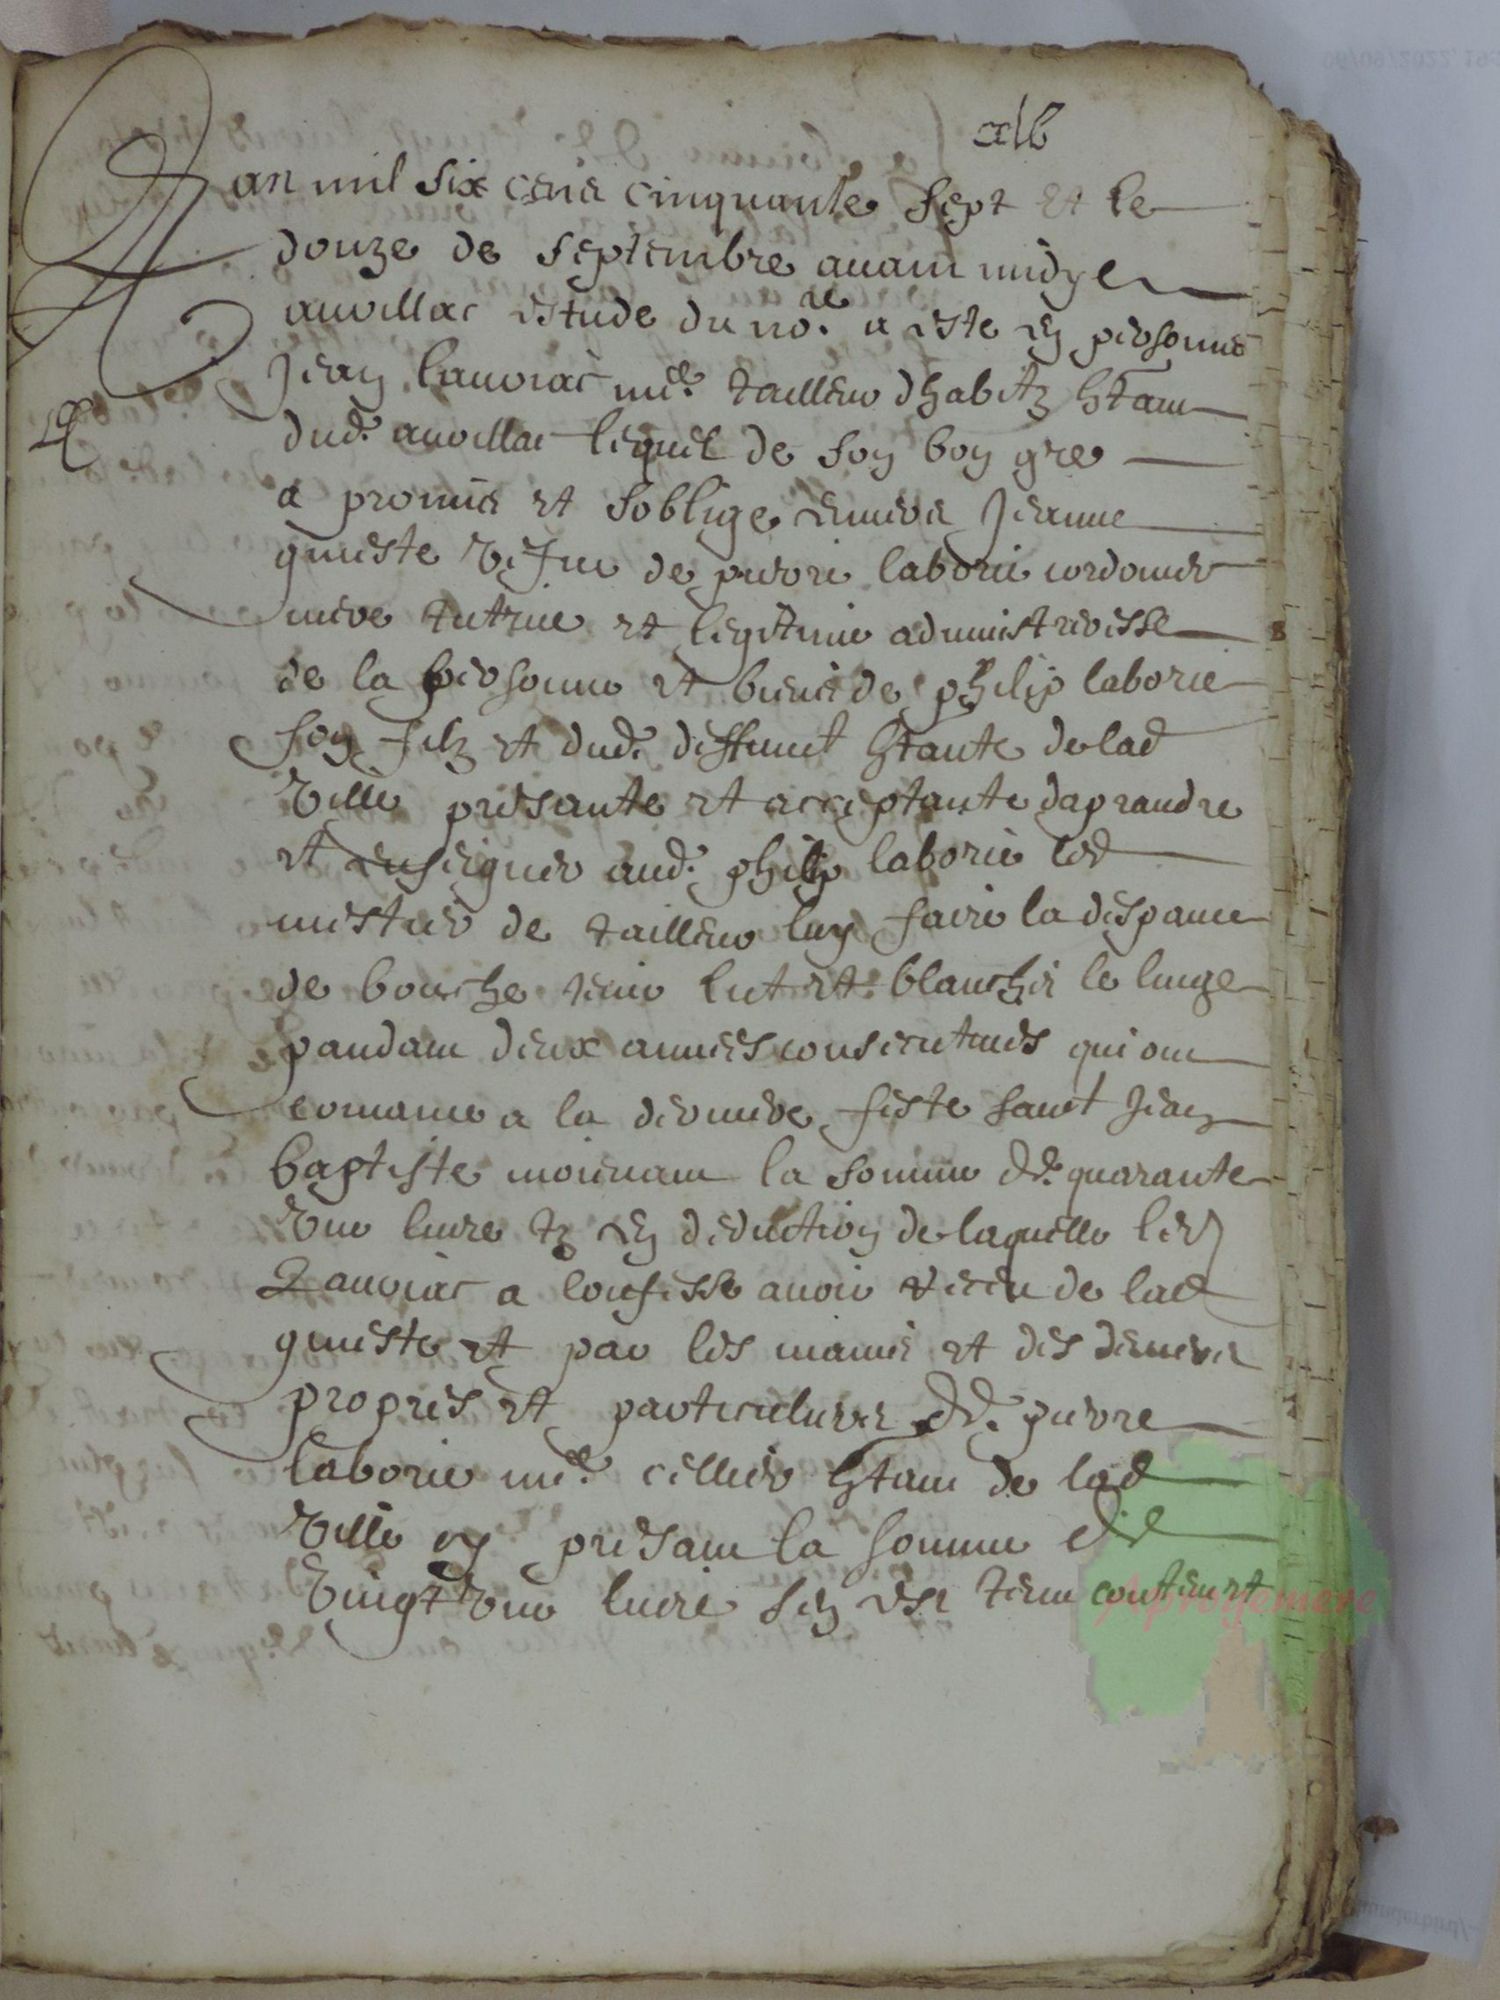 alb
Lan mil six cens cinquante sept et le
douze de septembre avant midy en
auvillar estude du no.re a esté en personne
Jean Lauriac m.e tailleur dhabitz htant
dud. auvillar lequel de son bon gré
a promis et soblige envers Jeanne
queste vefve de pierre laborie cordonier
mere tutrice et legitime administreresse
de la personne et biens de philip laborie
son filz et dud. deffunct htante de lad
ville presante et acceptante daprandre
et enseigner aud. philip laborie led
mestier de tailleur luy faire la despance
de bouche tenir lict et blanchir le linge
pandant deux annees consecutives qui ont
comance a la derniere feste sainct Jean
baptiste moienant la somme de quarante
une livre tz en deduction de laquelle led
Lauriac a confessé avoir receu de lad
queste et par les mains et des deniers
propres et particuliers de pierre
laborie m.e cellier htant de lad
ville icy presant la somme de
vingt une livre sen est tenu content
Aproyemere